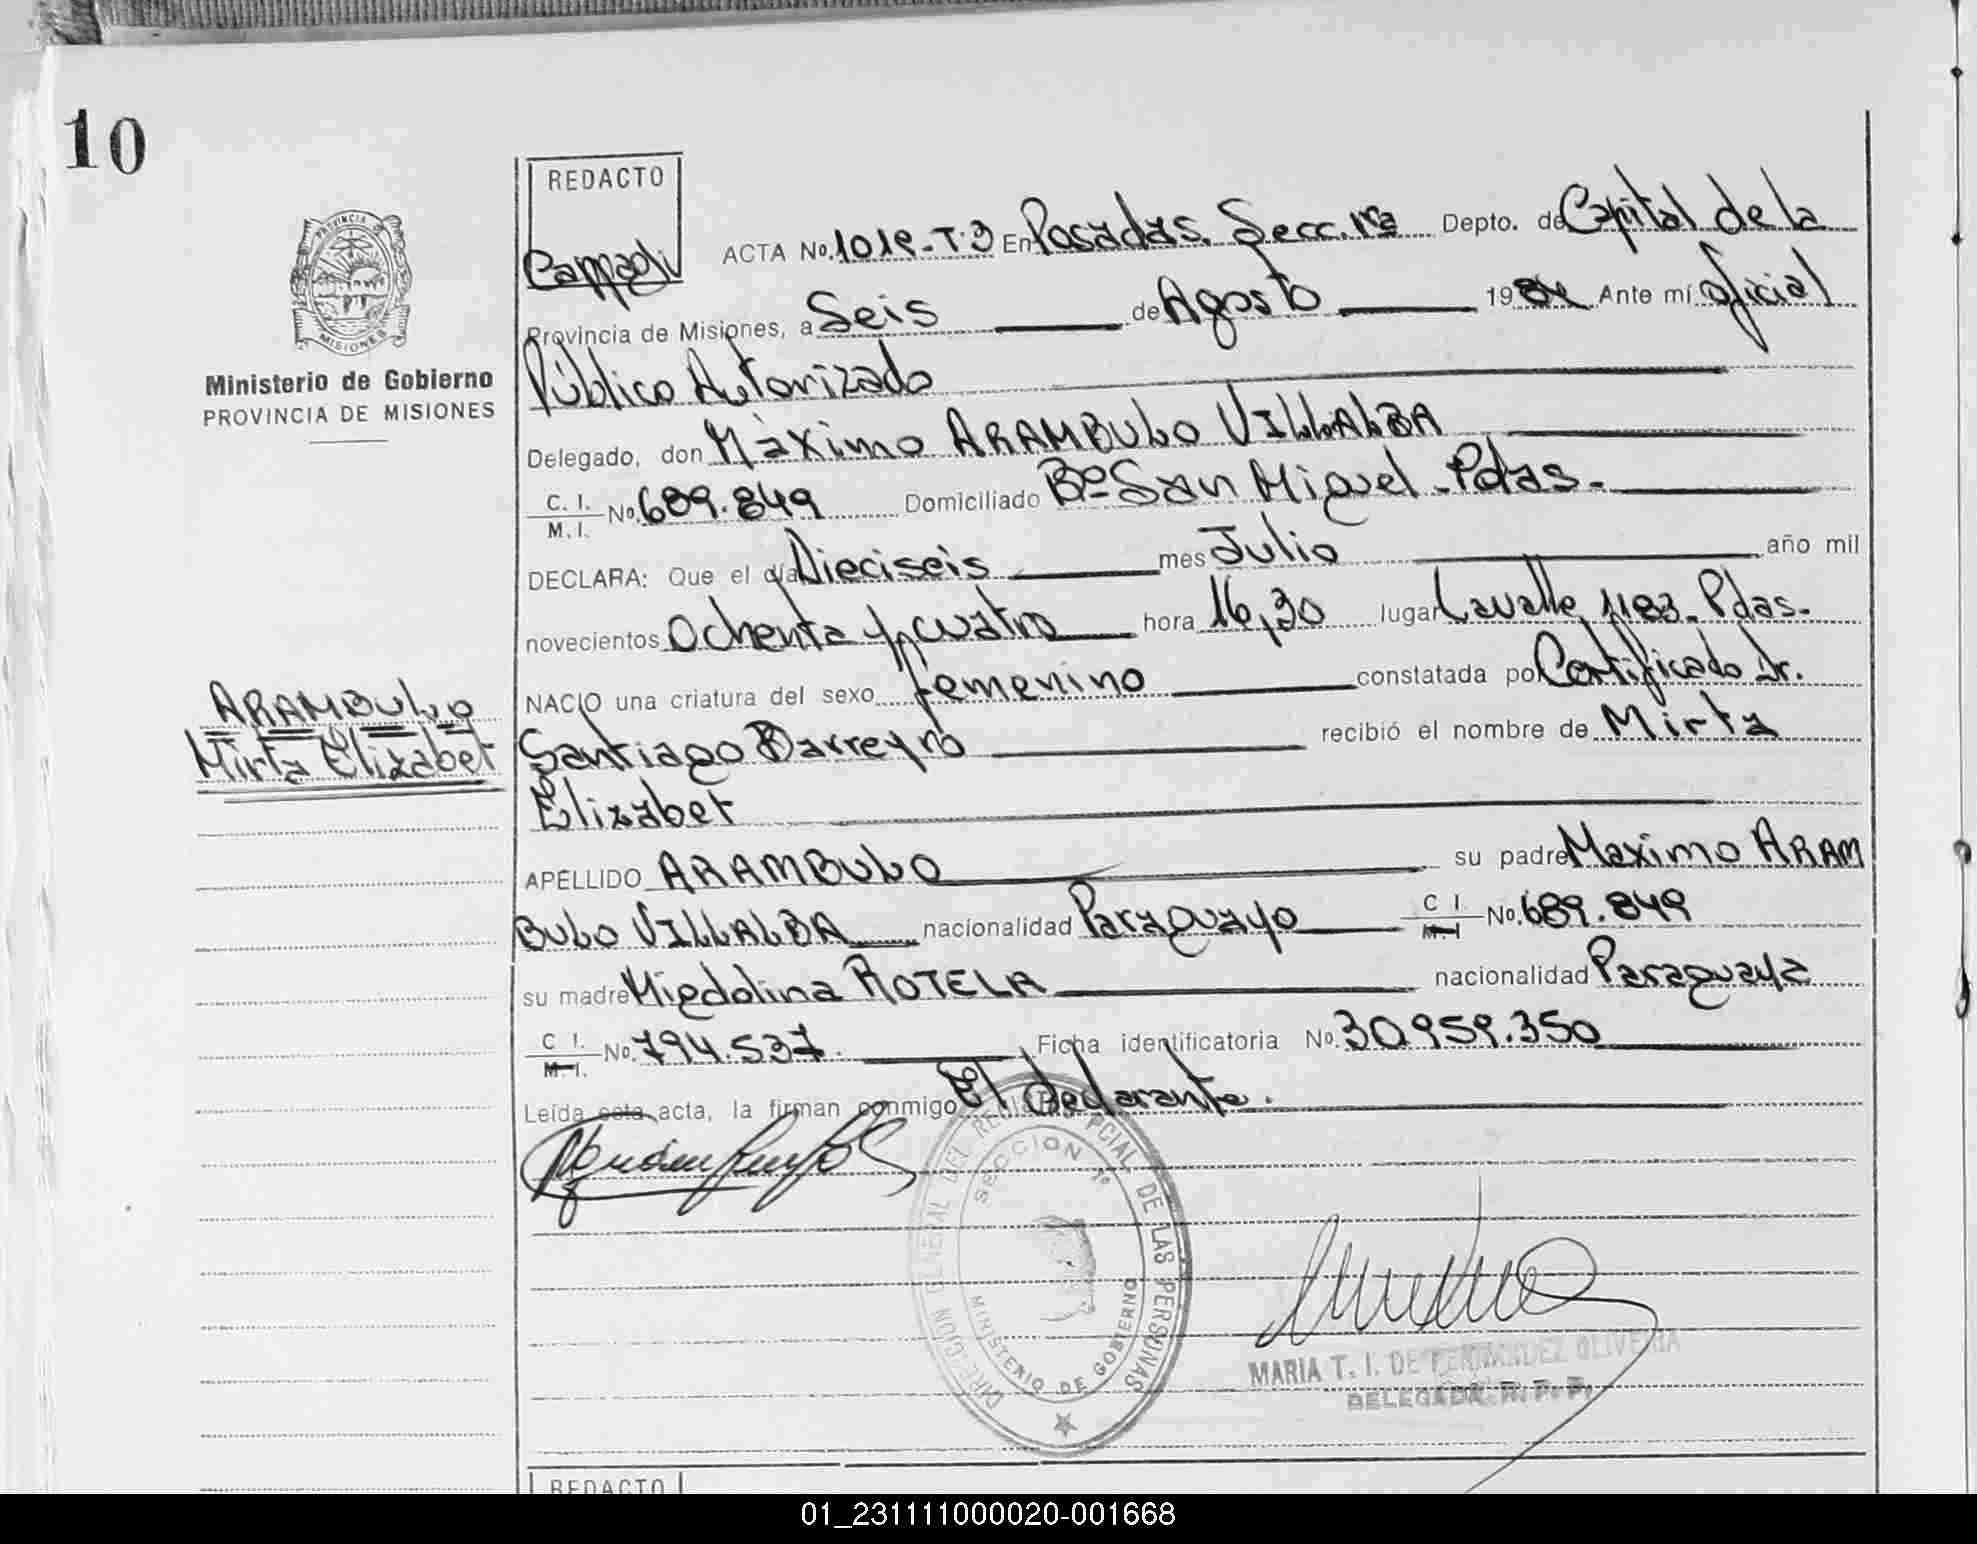 10
REDACTO
PROVINCIA
MISIONES
Ministerio de Gobierno
PROVINCIA DE MISIONES
ACTA No. 1019-T.3 En Posadas. Secc. 1ra Depto. de Capital de la
Provincia de Misiones, a Seis de Agosto 1984 Ante mí Oficial
Público Autorizado
Delegado, don Máximo ARAMBULO VILLALBA
C. I. M. I. No. 689.849 Domiciliado Bº San Miguel - Pdas.-
DECLARA: Que el día Dieciseis mes Julio año mil
novecientos Ochenta y cuatro hora 16,30 lugar Lavalle 1183- Pdas-
NACIO una criatura del sexo femenino constatada po Certificado Dr.
Santiago Barreyro recibió el nombre de Mirta
Elizabet
ARAMBULO
Mirta Elizabet
APELLIDO ARAMBULO su padre Maximo ARAM
BULO VILLALBA nacionalidad Paraguayo C I. M. I No. 689.849
su madre Migdolina ROTELA nacionalidad Paraguaya
C I. M. I. No. 794.537. Ficha identificatoria No. 30.959.350
Leída esta acta, la firman conmigo El declarante.
DIRECCION GENERAL DEL REGISTRO PCIAL DE LAS PERSONAS
SECCION 1º
MINISTERIO DE GOBIERNO
MARIA T. I. DE FERNANDEZ OLIVEIRA
DELEGADA R. P. P.
REDACTO
01_231111000020-001668